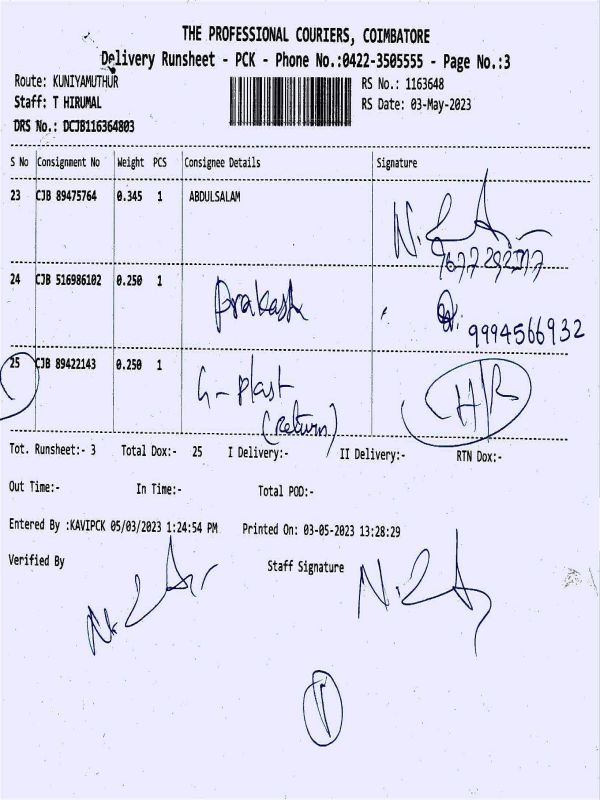 THE PROFESSIONAL COURIERS, COIMBATORE
Delivery Runsheet - PCK - Phone No.:0422-3505555 - Page No.:3
Route: KUNIYAMUTHUR RS No.: 1163648
Staff: T HIRUMAL RS Date: 03-May-2023
DRS No.: DCJB116364803
S No Consignment No Weight PCS Consignee Details Signature
23 CJB 89475764 0.345 1 ABDULSALAM
24 CJB 516986102 0.250 1 prakash
9994566932
25 CJB 89422143 0.250 1 G-plast
(Return)
Tot. Runsheet:- 3 Total Dox:- 25 I Delivery:- II Delivery:- RTN Dox:-
Out Time:- In Time:- Total POD:-
Entered By :KAVIPCK 05/03/2023 1:24:54 PM Printed On: 03-05-2023 13:28:29
Verified By Staff Signature